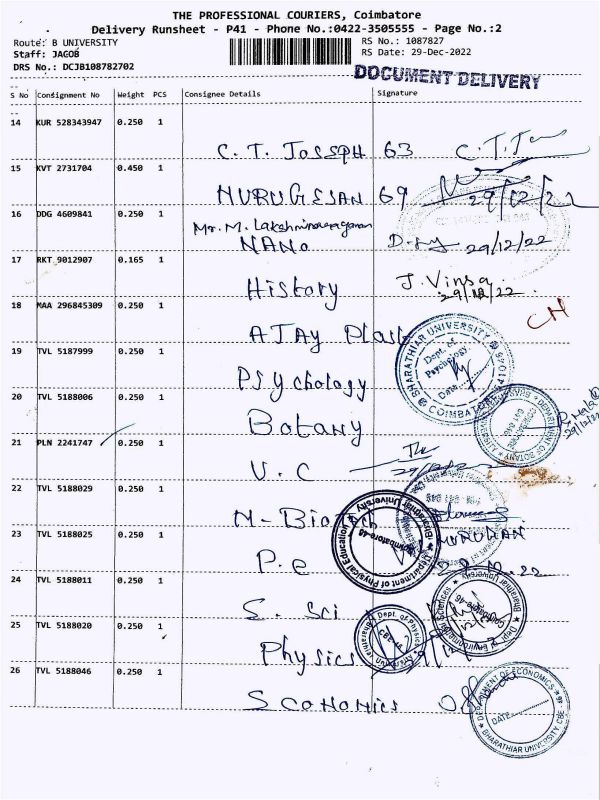 THE PROFESSIONAL COURIERS, Coimbatore
Delivery Runsheet - P41 - Phone No.:0422-3505555 - Page No.:2
Route: B UNIVERSITY RS No.: 1087827
Staff: JAGOB RS Date: 29-Dec-2022
DRS No.: DCJB108782702
DOCUMENT DELIVERY
S No Consignment No Weight PCS Consignee Details Signature
14 KUR 528343947 0.250 1
C. T. JOSSPH 63 C.T.
15 KVT 2731704 0.450 1
MURUGESAN 69 29/12/22
16 DDG 4609841 0.250 1
Mr. M.
NANO 29/12/22
17 RKT 9012907 0.165 1
History J. Vinsa
29/12/22
18 MAA 296845309 0.250 1
AJAY
BHARATHIAR UNIVERSITY
Dept. of Psychology
Date
COIMBATORE
19 TVL 5187999 0.250 1
PSychology
20 TVL 5188006 0.250 1
Botany
DEPARTMENT OF BOTANY
29/12/22
21 PLN 2241747 0.250 1
V. C
22 TVL 5188029 0.250 1
M-Biotech
23 TVL 5188025 0.250 1
MURUGAN
P. e
Department of Physical Education
Bharathiar
Coimbatore-46
24 TVL 5188011 0.250 1
S. Sci
Dept of Environmental Sciences
Bharathiar University
Coimbatore-46
25 TVL 5188020 0.250 1
Physics
Dept. of Physics
26 TVL 5188046 0.250 1
SCONOMICS
DEPARTMENT OF ECONOMICS
DATE
BHARATHIAR UNIVERSITY CBE-46